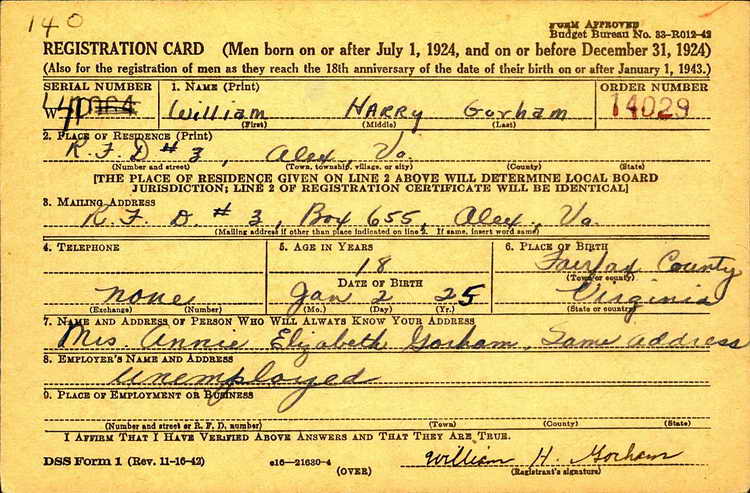 140
FORM APPROVED
Budget Bureau No. 33-R012-42
REGISTRATION CARD (Men born on or after July 1, 1924, and on or before December 31, 1924)
(Also for the registration of men as they reach the 18th anniversary of the date of their birth on or after January 1, 1943.)
SERIAL NUMBER 1. NAME (Print) ORDER NUMBER
W William HARRY Gorham 14029
(First) (Middle) (Last)
2. PLACE OF RESIDENCE (Print)
R.F.D # 3, Alex, Va.
(Number and street) (Town, township, village, or city) (County) (State)
[THE PLACE OF RESIDENCE GIVEN ON LINE 2 ABOVE WILL DETERMINE LOCAL BOARD
JURISDICTION; LINE 2 OF REGISTRATION CERTIFICATE WILL BE IDENTICAL]
3. MAILING ADDRESS
R. F. D. # 3, Box 655, Alex., Va.
(Mailing address if other than place indicated on line 2. If same, insert word same)
4. TELEPHONE 5. AGE IN YEARS 6. PLACE OF BIRTH
18 Fairfax County
DATE OF BIRTH (Town or county)
none Jan 2 25 Virginia
(Exchange) (Number) (Mo.) (Day) (Yr.) (State or country)
7. NAME AND ADDRESS OF PERSON WHO WILL ALWAYS KNOW YOUR ADDRESS
Mrs. Annie Elizabeth Gorham, Same address
8. EMPLOYER'S NAME AND ADDRESS
unemployed
9. PLACE OF EMPLOYMENT OR BUSINESS
(Number and street or R. F. D. number) (Town) (County) (State)
I AFFIRM THAT I HAVE VERIFIED ABOVE ANSWERS AND THAT THEY ARE TRUE.
DSS Form 1 (Rev. 11-16-42) e16-21630-4 William H. Gorham
(OVER) (Registrant's signature)